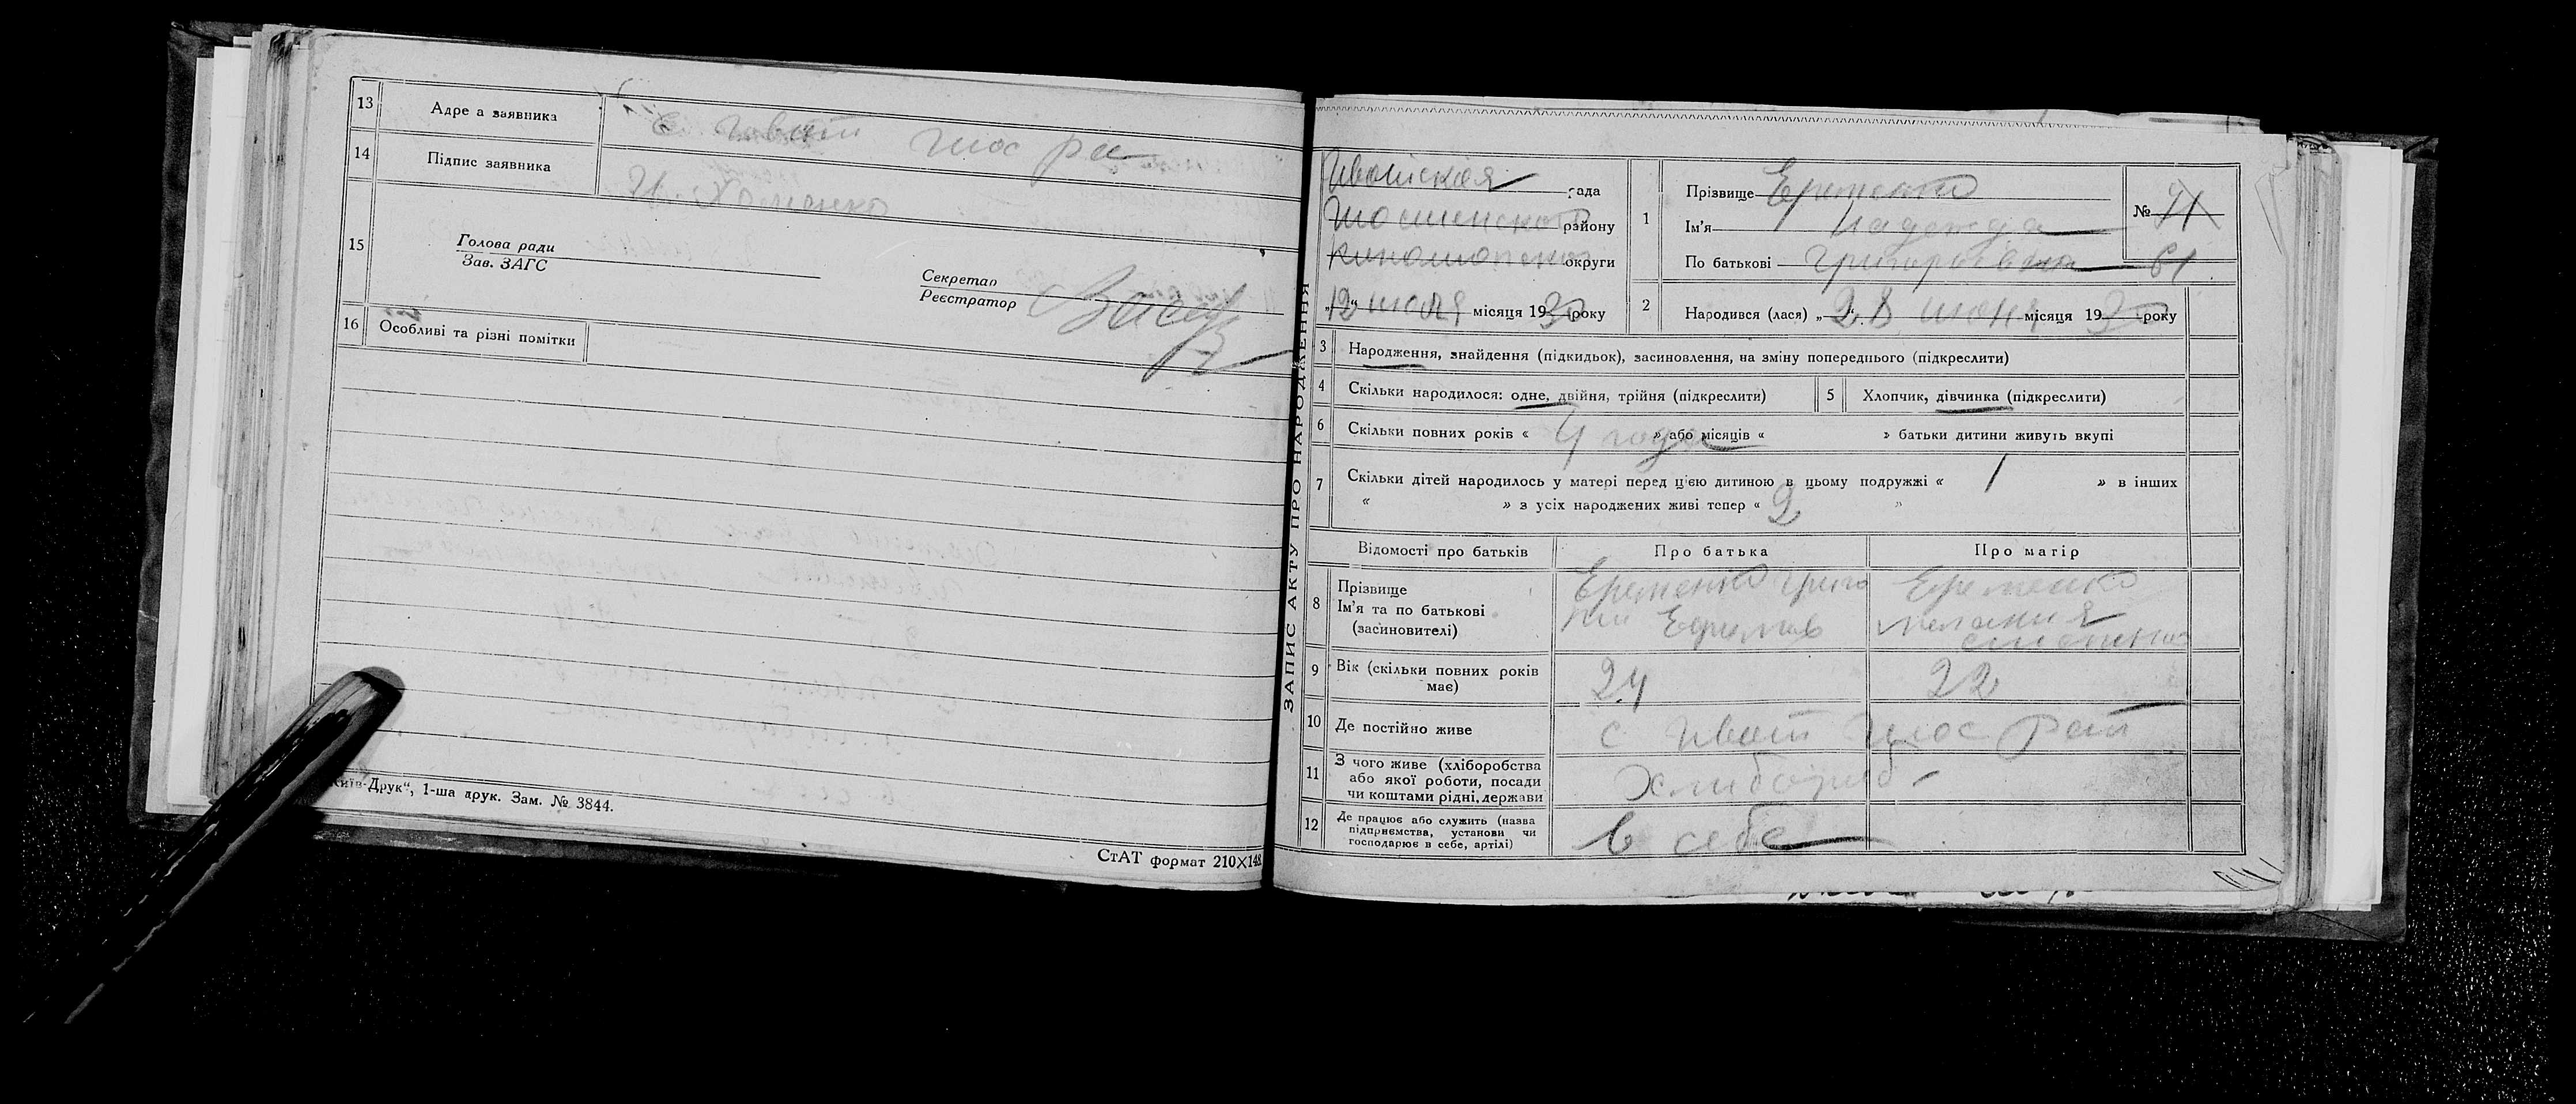 13 Адре а заявника с. Ивот шос ра
14 Підпис заявника И. Хоменко
15 Голова ради
Зав. ЗАГС
Секретар
Реєстратор
16 Особливі та різні помітки
Київ-Друк“, 1-ша друк. Зам. № 3844.
СтАТ формат 210×148
ЗАПИС АКТУ ПРО НАРОДЖЕННЯ
Ивотская рада
района
округи
„12“ июля місяця 1930 року
1 Прізвище Еременко
Ім'я Надежда
По батькові Григорьевна
№ 61
2 Народився (лася) „28“ июня місяця 1930 року
3 Народження, знайдення (підкидьок), засиновлення, на зміну попереднього (підкреслити)
4 Скільки народилося: одне, двійня, трійня (підкреслити) 5 Хлопчик, дівчинка (підкреслити)
6 Скільки повних років « 4 года » або місяців « » батьки дитини живуть вкупі
7 Скільки дітей народилось у матері перед цією дитиною в цьому подружжі « 1 » в інших
« » з усіх народжених живі тепер « 2 »
Відомості про батьків Про батька Про матір
8 Прізвище
Ім'я та по батькові
(засиновителі)
Еременко Григо
рий Ефимов
Еременко
Мелания
9 Вік (скільки повних років має) 24 22
10 Де постійно живе с Ивот шос рай
11 З чого живе (хліборобства
або якої роботи, посади
чи коштами рідні, держави
Хлибороб
12 Де працює або служить (назва
підприємства, установи чи
господарює в себе, артілі)
в себе